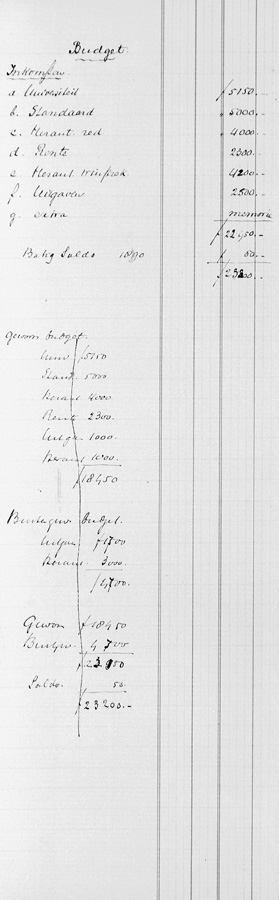 Budget.
Inkomsten.
a Universiteit ƒ 5150.-
b. Standaard „ 5000.-
c. Heraut red „ 4000
d. Rente 2300.-
e. Heraut winst 4200.-
f. Uitgaven 2500.-
g. extra memorie
ƒ 22950.-
Batig Saldo 1889/90 ƒ 50.-
ƒ 23200.-
Gewoon budget.
Univ ƒ5150
Stand 5000.
Heraut 4000
Rent 2300.
Uitga 1000.
Heraut 1000.
ƒ18450
Buitengew budget.
Uitgav ƒ1700
Heraut 3000.
ƒ4700.
Gewoon ƒ18450
Buitgw 4700
ƒ23150
Saldo 50.
ƒ23200.-